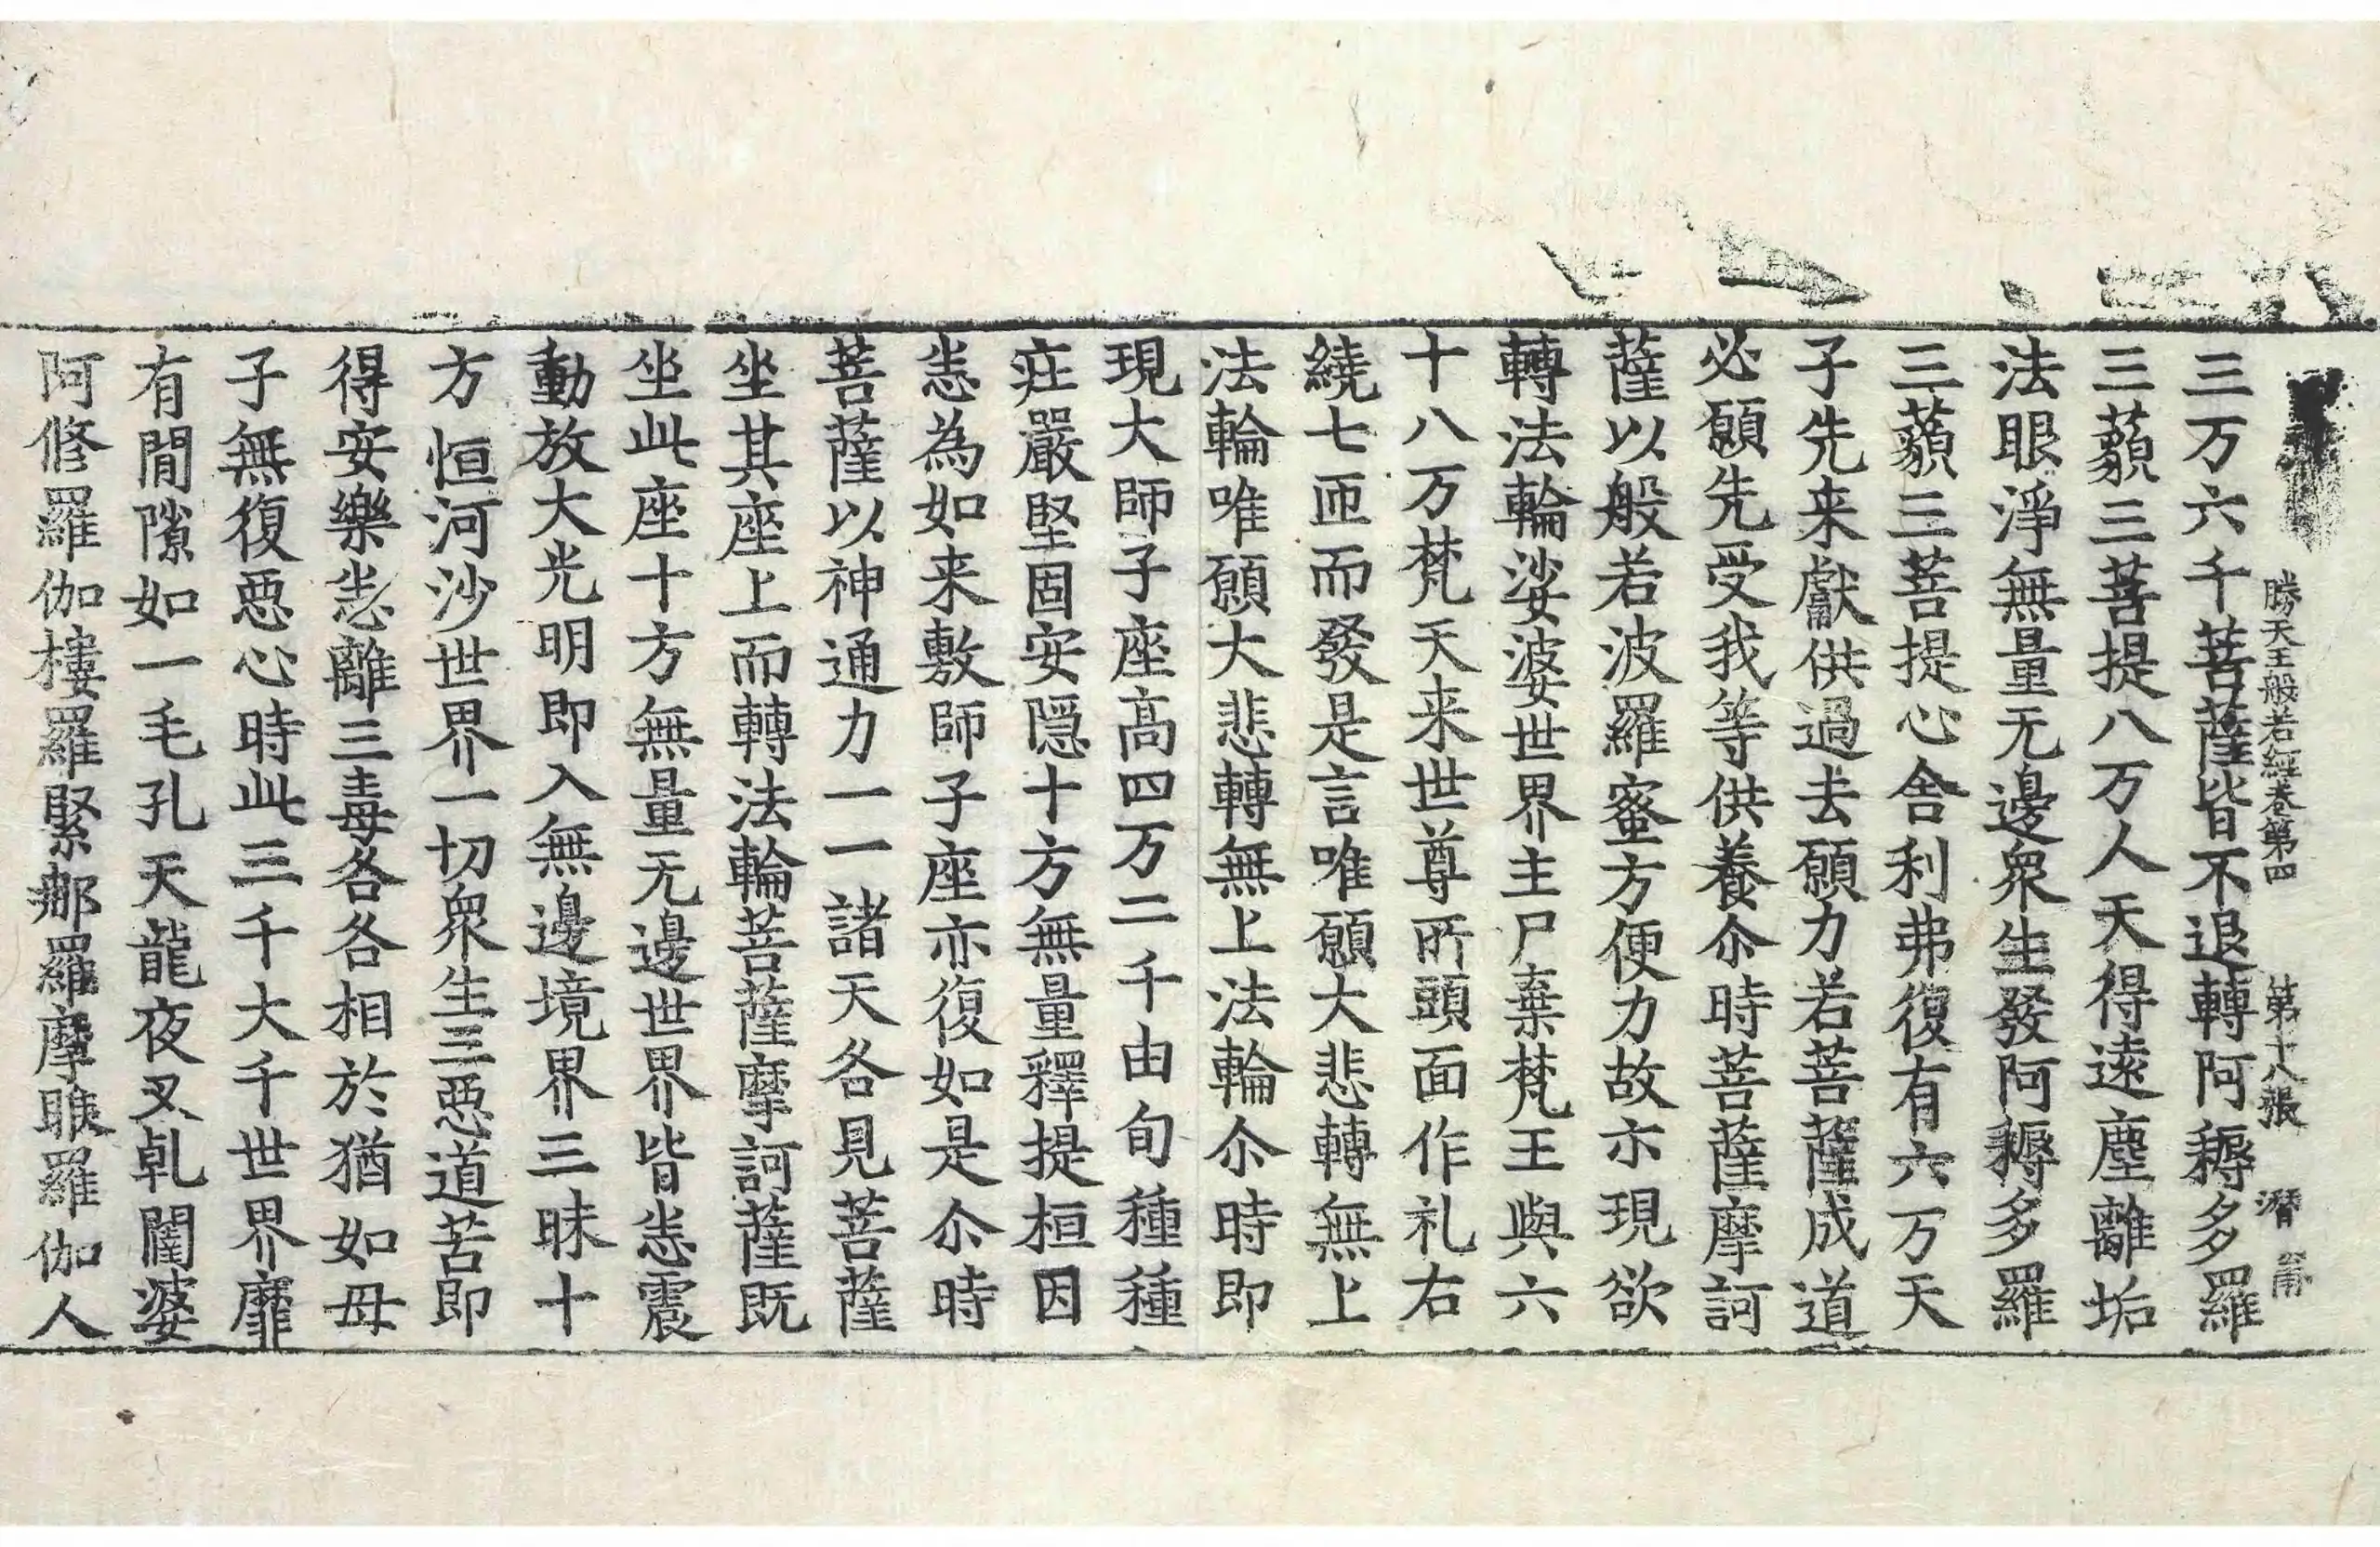 勝天王般若經卷第四 第十八張 潛
三万六千菩薩皆不退轉阿耨多羅
三藐三菩提八万人天得遠塵離垢
法眼淨無量无邊衆生發阿耨多羅
三藐三菩提心舍利弗復有六万天
子先来獻供過去願力若菩薩成道
必願先受我等供養尒時菩薩摩訶
薩以般若波羅蜜方便力故亦現欲
轉法輪娑婆世界主尸棄梵王與六
十八万梵天来世尊所頭面作礼右
繞七匝而發是言唯願大悲轉無上
法輪唯願大悲轉無上法輪尒時即
現大師子座高四万二千由旬種種
莊嚴堅固安隠十方無量釋提桓因
悉為如来敷師子座亦復如是尒時
菩薩以神通力一一諸天各見菩薩
坐其座上而轉法輪菩薩摩訶薩既
坐此座十方無量无邊世界皆悉震
動放大光明即入無邊境界三昧十
方恒河沙世界一切衆生三惡道苦即
得安樂悉離三毒各各相於猶如母
子無復惡心時此三千大千世界靡
有閒隙如一毛孔天龍夜叉乹闥婆
阿修羅伽樓羅緊那羅摩睺羅伽人